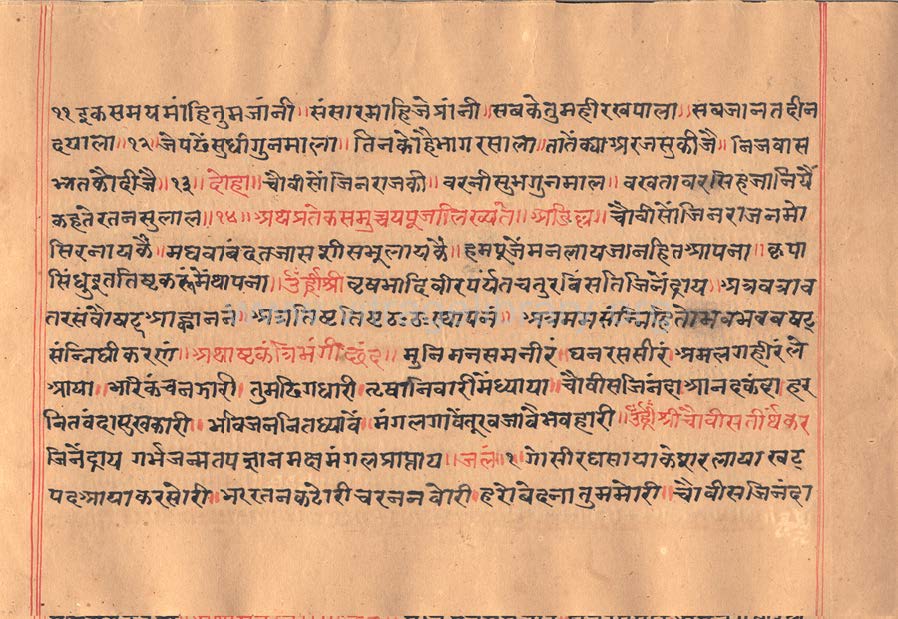 ११ इक समय मांहि तुम जांनी ॥ संसार माहि जे प्रांनी ॥ सब के तुम ही रखपाला ॥ सब जानत दीन
दयाला ॥ १२ ॥ जे पढें सुधी गुनमाला ॥ तिनको है भाग रसाला ॥ तातें क्या अरज सु कीजै ॥ निजवास
भगत कौ दीजै ॥ १३ ॥ दोहा ॥ चौवीसों जिनराज की ॥ वरनी सुभ गुनमाल ॥ वखतावरसिंह जानियैं
कहते रतन सुलाल ॥ १४ ॥ अथ प्रतेक समुच्चय पूजा लिख्यते ॥ अडिल्ल ॥ चौवीसों जिनराज नमों
सिरनायकैं ॥ मघवा बंदत जास शीस भूलायकें ॥ हम पूजें मन लाय जान हित आपना ॥ कृपा
सिंधु इत तिष्ट करूं मैं थापना ॥ ॐ ह्रीं श्री वृषभादि वीर पर्यंत चतुरविंसति जिनेंद्राय ॥ अत्र अवतराव
तर संवौषट् आह्वाननं ॥ अत्र तिष्ट तिष्ट ठः ठः स्थापनं ॥ अत्र मम संन्निहितो भव भव वषट्
संन्निधीकरणं ॥ अथाष्टकं त्रिभंगी छंद ॥ मुनि मन सम नीरं ॥ घन रस सीरं ॥ अमल गहीरं ले
आया ॥ भरि कंचन झारी ॥ तुम ढिग धारी ॥ तृषा निवारी मैं ध्याया ॥ चौवीस जिनंदा आनदकंदा हर
नित वंदा सुखकारी ॥ भविजन नित ध्यावें ॥ मंगल गावें तूर वजावै भवहारी ॥ ॐ ह्रीं श्री चौवीस तीर्थंकर
जिनेंद्राय गर्भ जन्म तप ज्ञान मक्ष मंगल प्राप्ताय ॥ जलं ॥ १ ॥ गोसीर घसाया केशर लाया षट्
पद आया कर सोरी ॥ भर रतन कटोरी चरनन वोरी ॥ हरो बेदना तुम मोरी ॥ चौवीस जिनंदा